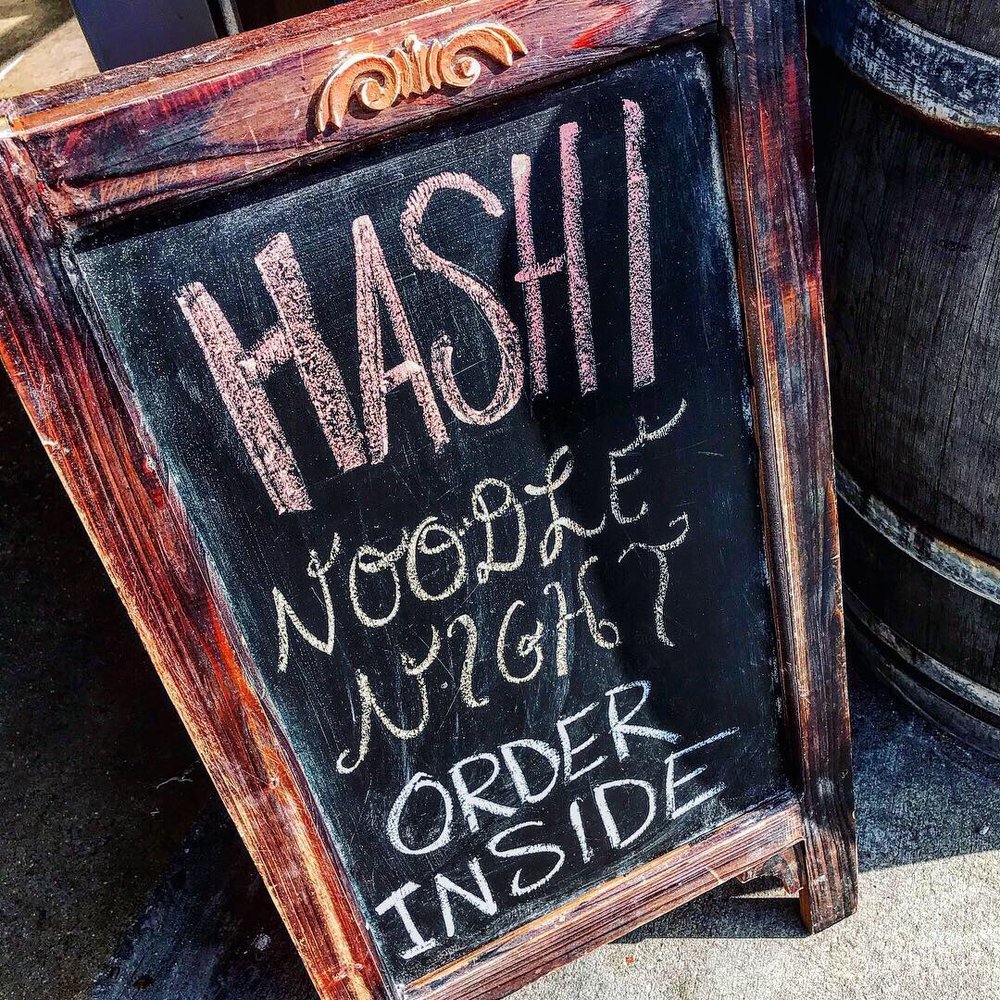 HASHI
NOODLE
NIGHT
ORDER
INSIDE